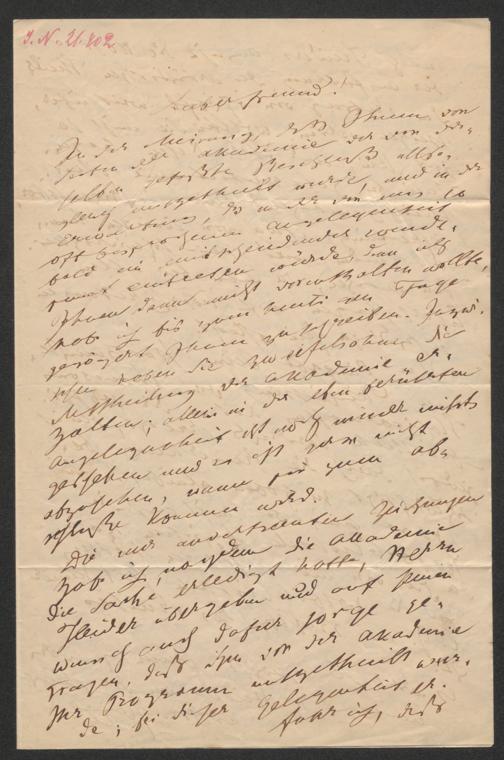 I.N. 21.802
Lieber Freund!
In der Meinung, daß Ihnen von
Seiten der Akademie der von der-
selben gefaßte Beschluß allso-
gleich mitgetheilt werde, und in der
Erwartung, daß in der von uns so
oft besprochenen Angelegenheit
bald ein entscheidender Wende-
punct eintreten würde, den ich
Ihnen dann nicht vorenthalten wollte,
hab ich bis zum heutigen Tage
gezögert Ihnen zu schreiben. Inzwi-
schen haben Sie zweifelsohne die
Mittheilung der Akademie er-
halten; allein in der eben berührten
Angelegenheit ist noch immer nichts
geschehen und es ist noch nicht
abzusehen, wann sie zum Ab-
schluße kommen wird.
Die mir anvertrauten Zeichnungen
hab ich, nachdem die Akademie
die Sache erledigt hatte, Herrn
Heider übergeben und auf seinen
Wunsch auch dafür Sorge ge-
tragen, daß ihm von der Akademie
Ihr Programm mitgetheilt wur-
de; bei dieser Gelegenheit er-
fuhr ich, daß